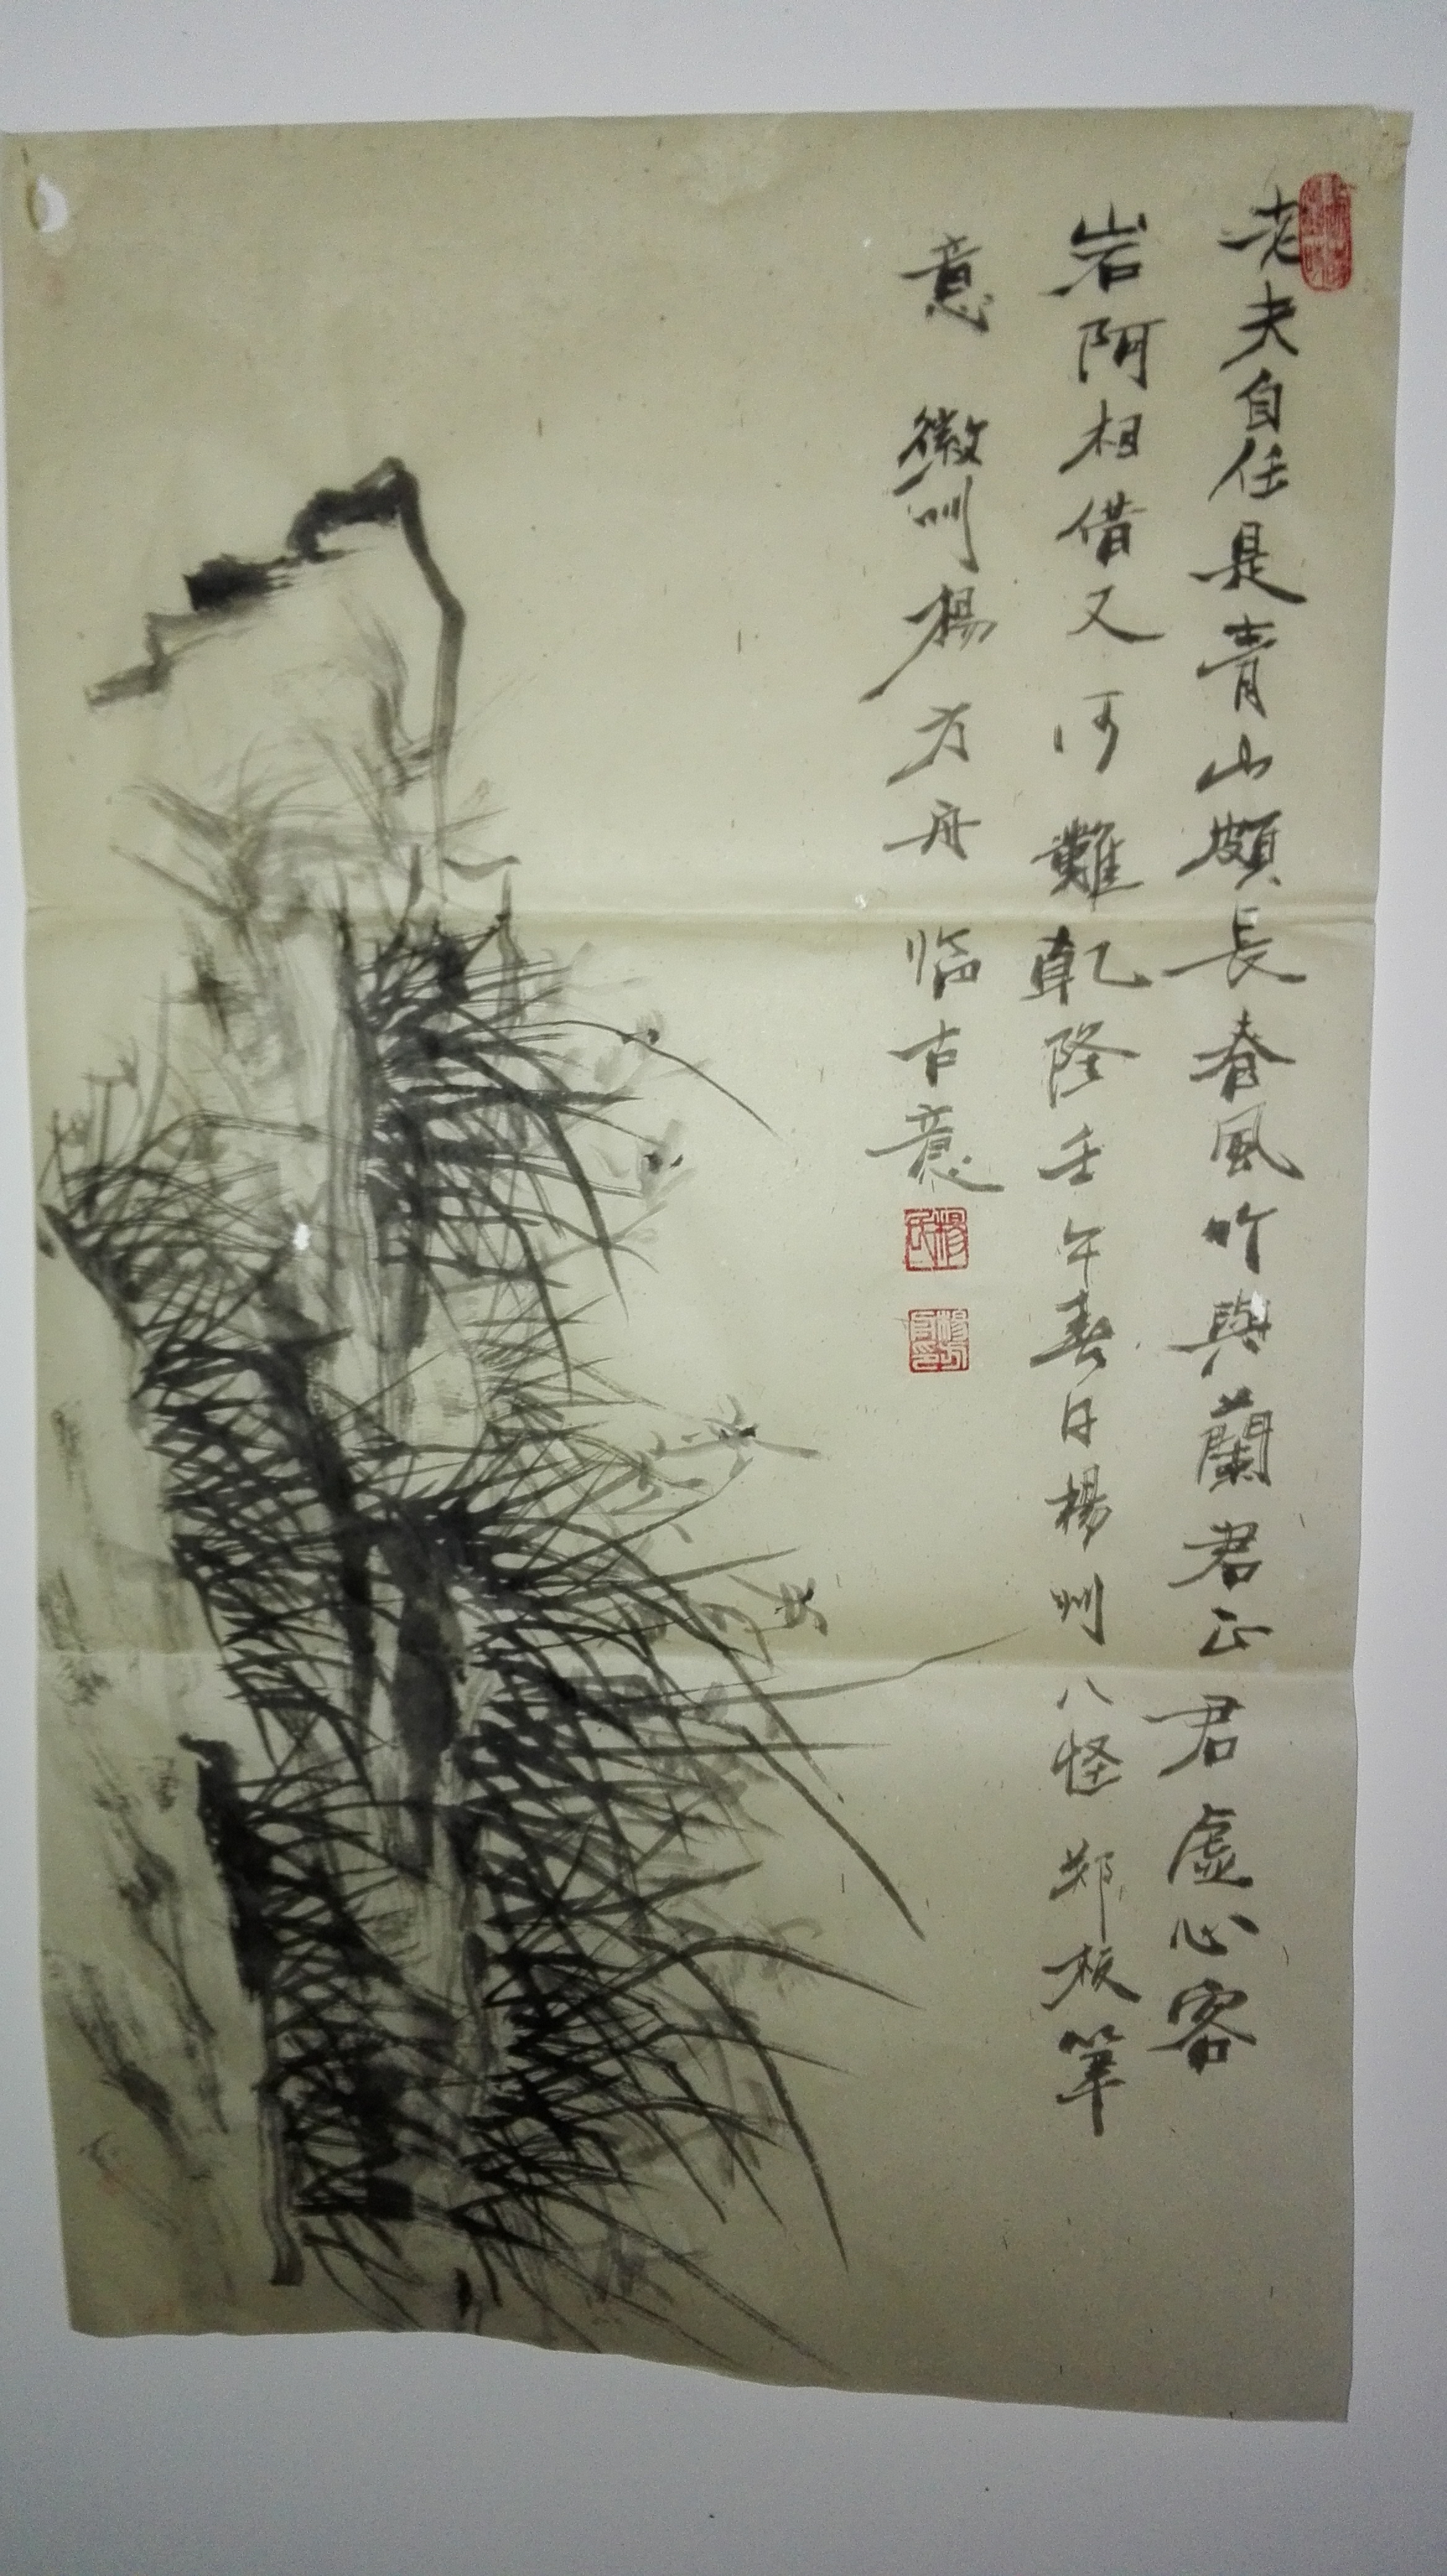 老夫自任是青山頗長春風竹與蘭君正君虛心客
岩阿相借又何難乾隆壬午春日楊州八怪郑板筆
意 徽州楊为舟临古意
楊氏